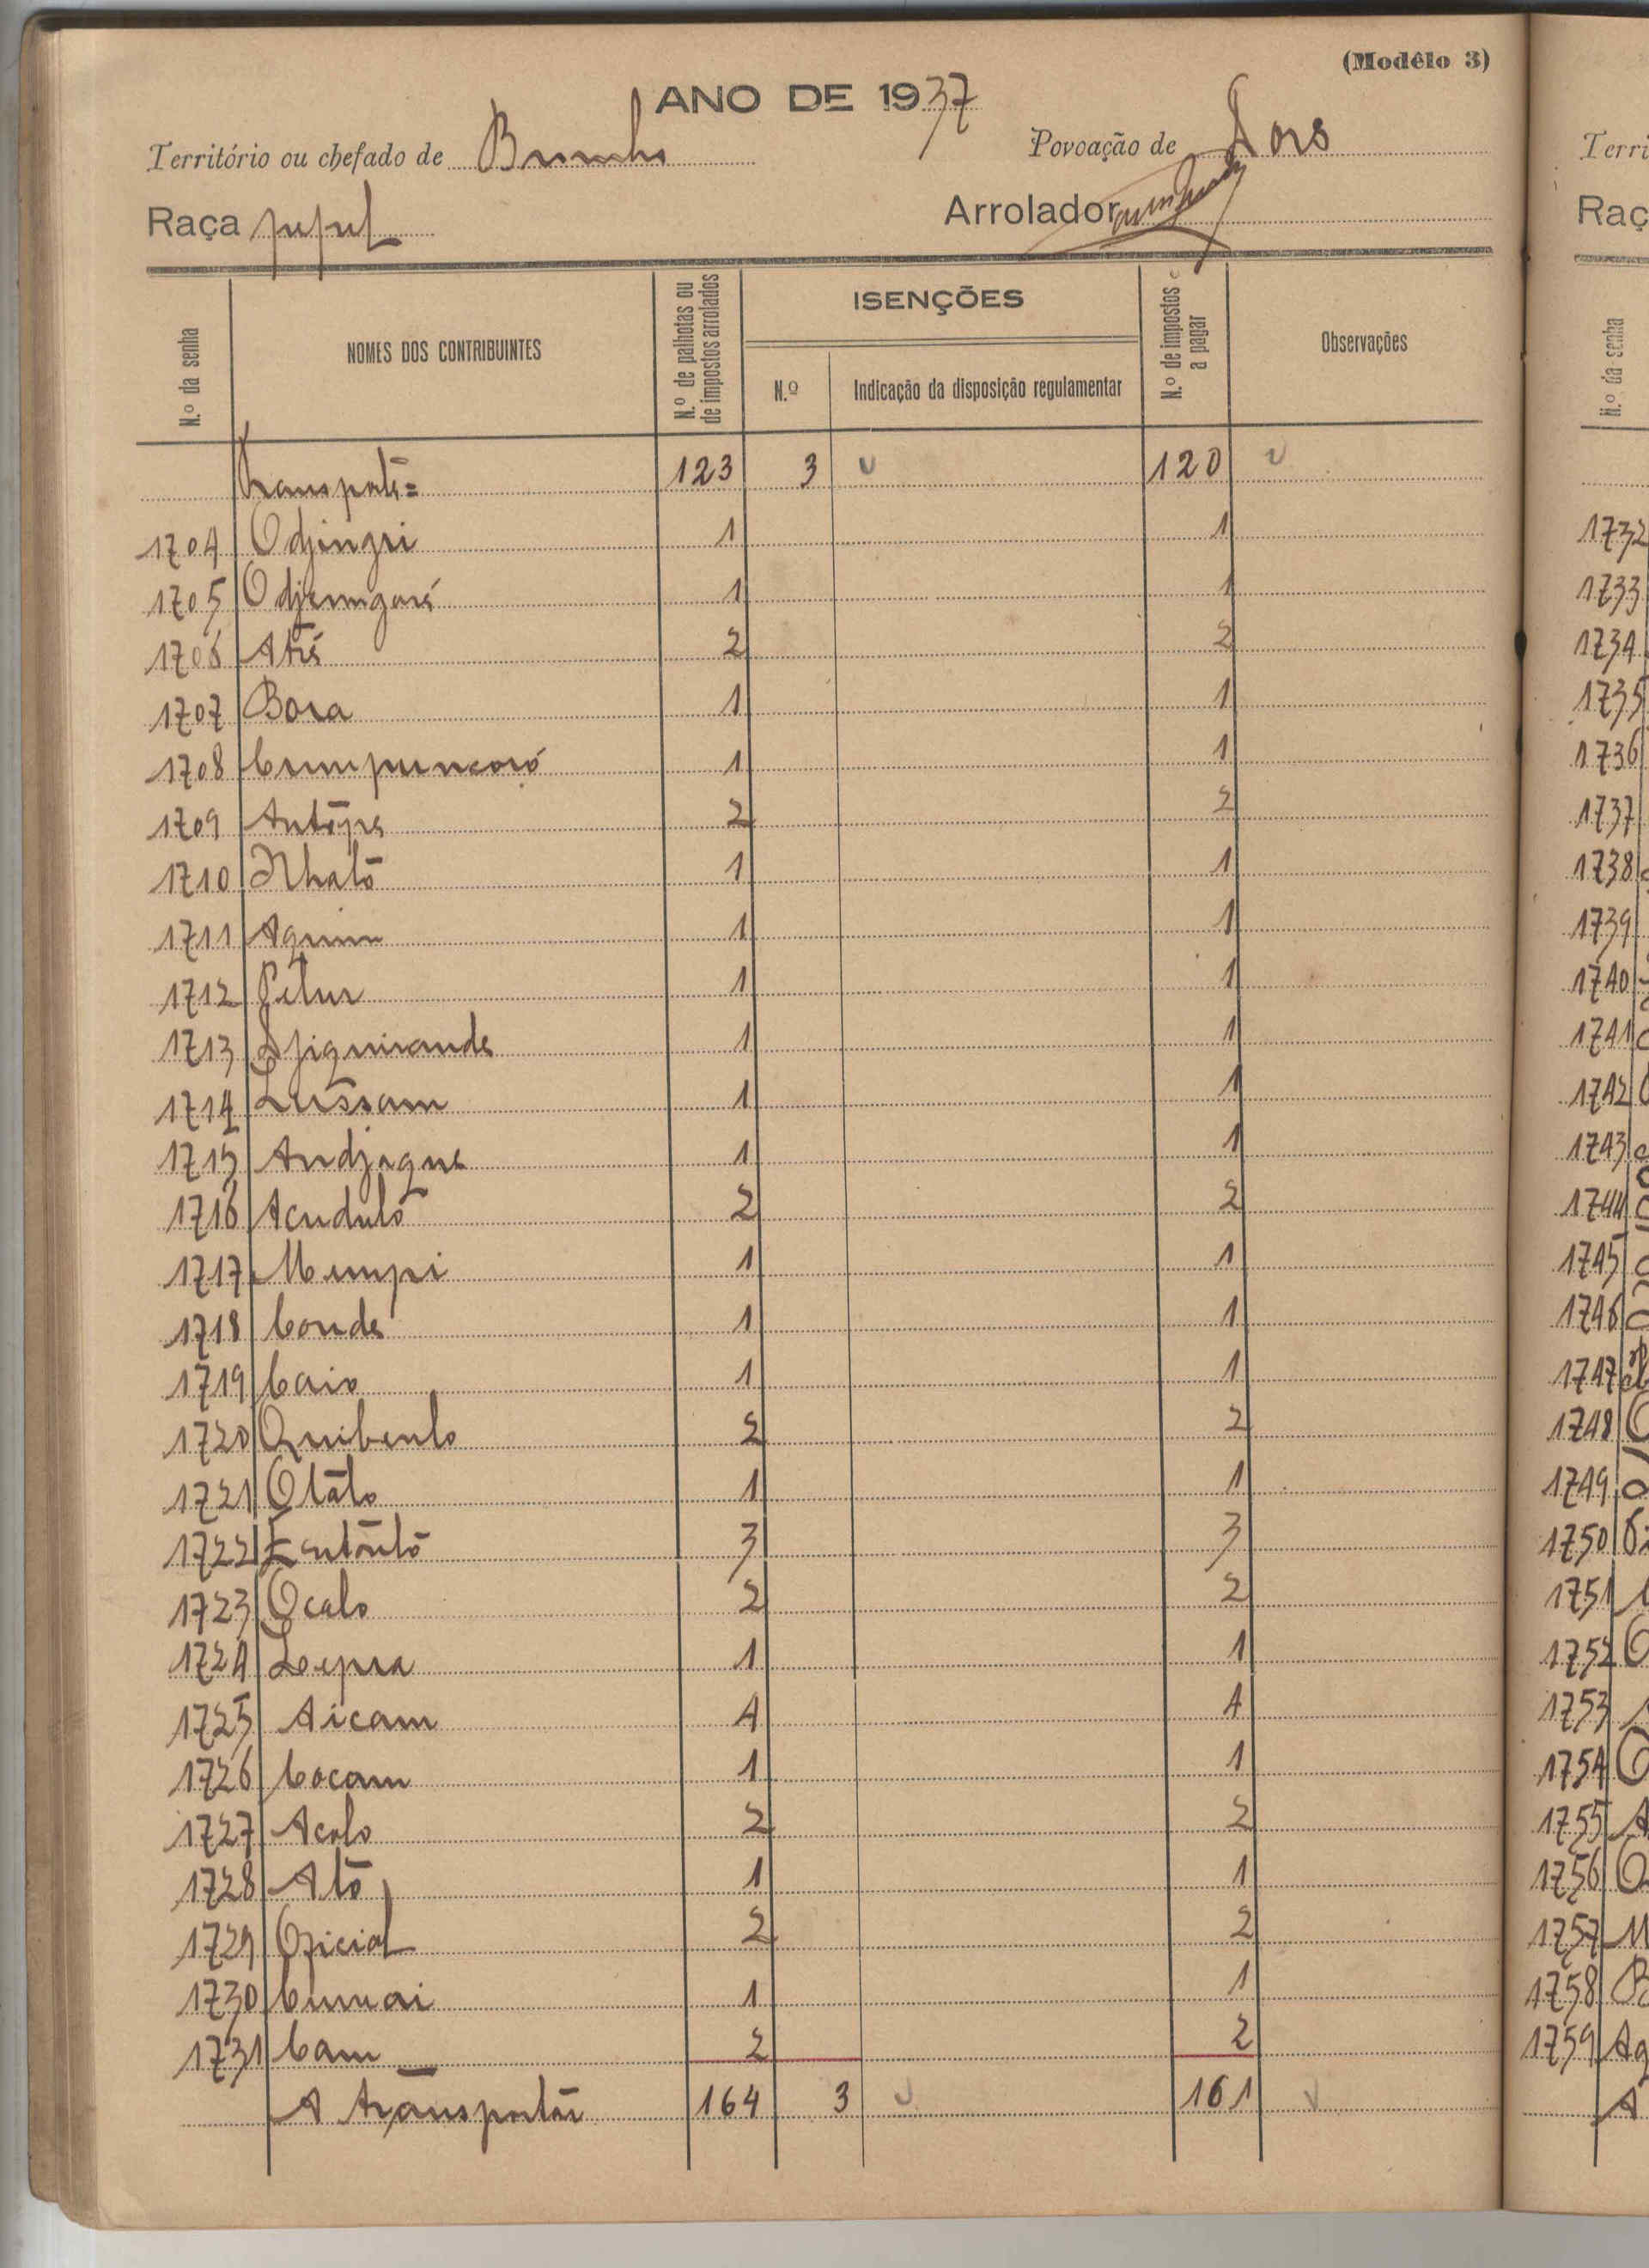 (Modêlo 3)
ANO DE 1937
Território ou chefado de
Povoação de Dors
Raça papel
Arrolador
N.º da senha
NOMES DOS CONTRIBUINTES
N.º de palhotas ou de impostos arrolados
ISENÇÕES
N.º
Indicação da disposição regulamentar
N.º de impostos a pagar
Observações
Transporte= 123 3 120
1704 Odjingri 1 1
1705 1 1
1706 2 2
1707 Bora 1 1
1708 Cumpuncoró 1 1
1709 2 2
1710 Nható 1 1
1711 1 1
1712 1 1
1713 Djiquirande 1 1
1714 Lussam 1 1
1715 Andjaque 1 1
1716 Acuduló 2 2
1717 Mempi 1 1
1718 Conde 1 1
1719 Caio 1 1
1720 2 2
1721 Otáto 1 1
1722 3 3
1723 2 2
1724 1 1
1725 Aicam 4 4
1726 Cocam 1 1
1727 2 2
1728 Ató 1 1
1729 Oficial 2 2
1730 Cumuai 1 1
1731 Cam 2 2
A transportar 164 3 161
Terri
Raç
N.º da senha
1732
1733
1734
1735
1736
1737
1738
1739
1740
1741
1742
1743
1744
1745
1746
1747
1748
1749
1750
1751
1752
1753
1754
1755
1756
1757
1758
1759
A